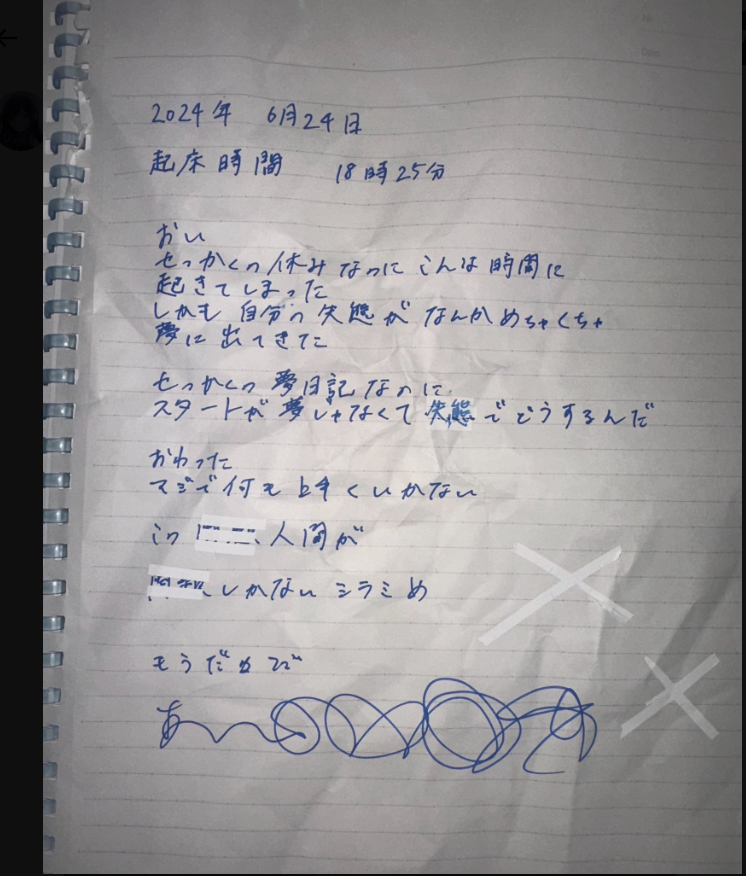 2024年 6月24日
起床時間 18時25分
おい
せっかくの休みなのにこんな時間に
起きてしまった
しかも自分の失態がなんかめちゃくちゃ
夢に出てきた
せっかくの夢日記なのに
スタートが夢じゃなくて失態でどうするんだ
おわった
マジで何も上手くいかない
この 人間が
しかない シラミめ
もうだめだ
あ